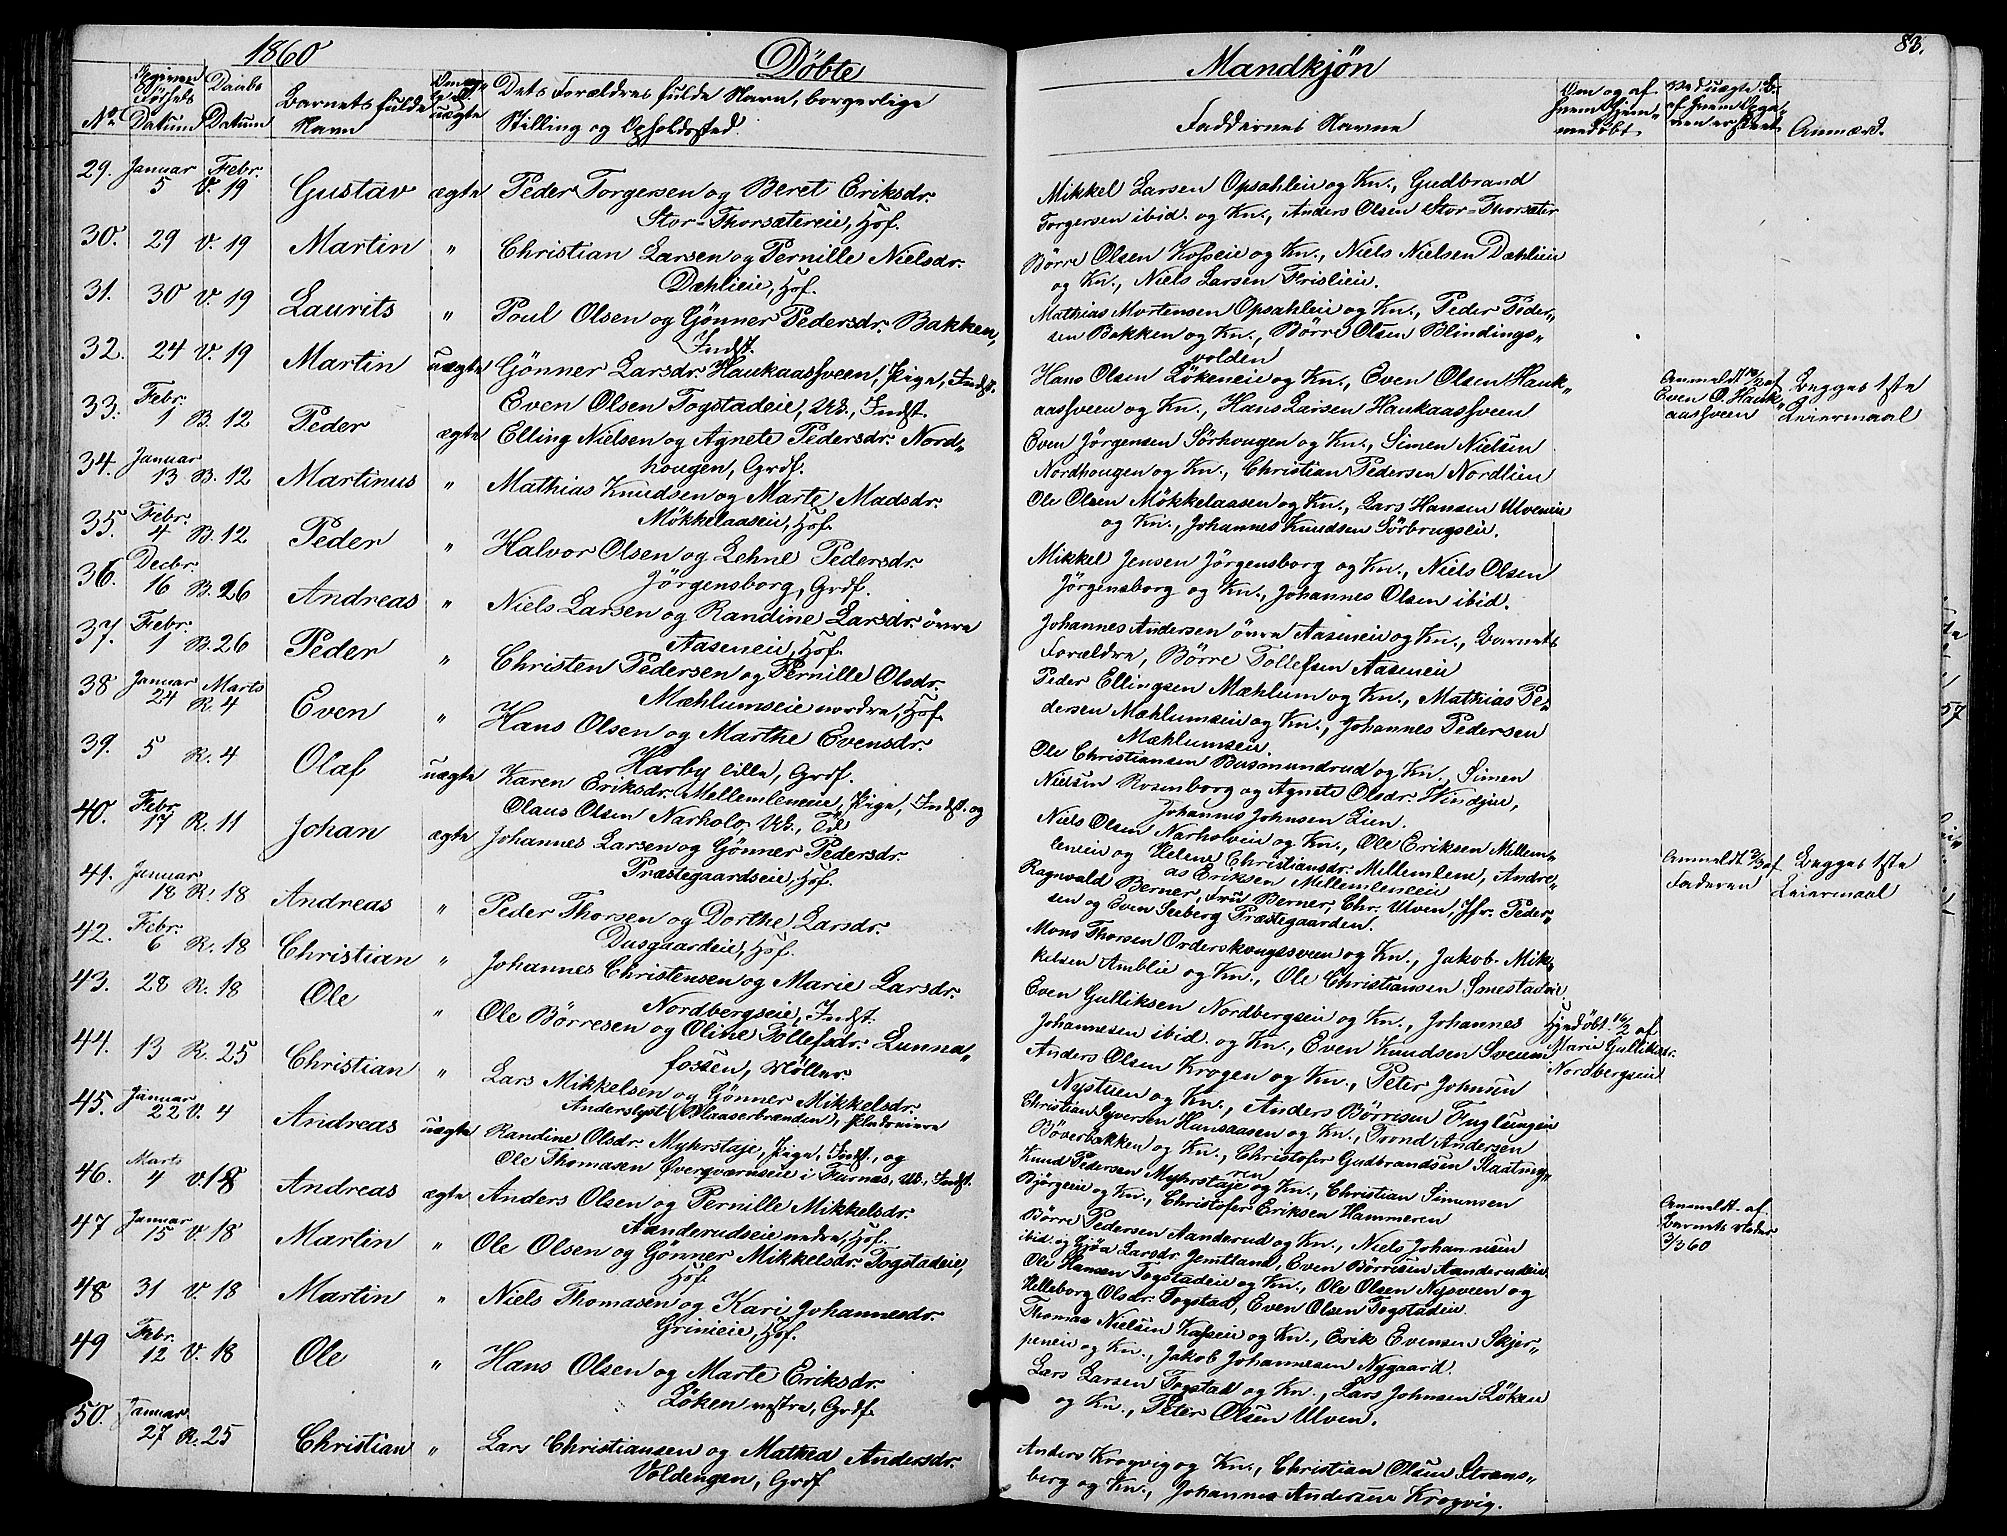 1860 Døbte Mandkjøn 83.
No. Opgiven Fødsels Datum Daabs Datum Barnets fulde Navn Om ægte el. uægte Dets Forældres fulde Navn, borgerlige Stilling og Opholdssted. Faddernes Navne Om og af hvem hjemmedøbt Anmærk.
29. Januar 5 Febr. V. 19 Gustav ægte Peder Torgersen og Beret Eriksdr.
Stor-Thorsætereie, Hsf.
Mikkel Larsen Opsahleie og Kn., Gudbrand
Torgersen ibid. og Kn., Anders Olsen Stor-Thorsæter
30. 29 V. 19 Martin " Christian Larsen og Pernille Nielsdr.
Dæhlieie, Hsf.
Børre Olsen Kosseie og Kn., Niels Nielsen Dæhlieie
og Kn., Niels Larsen Frislieie.
31. 30 V. 19 Laurits " Poul Olsen og Gønner Pedersdr. Bakken,
Indst.
Mathias Mortensen Opsahleie og Kn., Peder Peder„
sen Bakken og Kn., Børre Olsen Blindings„
volden
32. 24 V. 19 Martin uægte Gønner Larsdr. Haukaassveen, Pige, Indst.
Even Olsen Togstadeie, Uk., Indst.
Hans Olsen Løkeneie og Kn., Even Olsen Hauk„
aassveen og Kn., Hans Larsen Haukaassveen
Anmeldt af
Even O. Hauk„
aassveen
Begges 1ste
Leiermaal
33. Febr. 1 B. 12 Peder ægte Elling Nielsen og Agnete Pedersdr. Nord„
hougen, Grdf.
Even Jørgensen Sørhougen og Kn., Simen Nielsen
Nordhougen og Kn., Christian Pedersen Nordlien
34. Januar 13 B. 12 Martinus " Mathias Knudsen og Marte Madsdr.
Møkkelaaseie, Hsf.
Ole Olsen Møkkelaasen og Kn., Lars Hansen Ulveneie
og Kn., Johannes Knudsen Sørbrugseie.
35. Febr. 4 B. 12 Peder " Halvor Olsen og Lehne Pedersdr.
Jørgensborg, Grdf.
Mikkel Jensen Jørgensborg og Kn., Niels Olsen
Jørgensborg og Kn., Johannes Olsen ibid.
36. Decbr. 16 B. 26 Andreas " Niels Larsen og Randine Larsdr. øvre
Aaseneie, Hsf.
Johannes Andersen øvre Aaseneie og Kn., Barnets
Forældre, Børre Tollefsen Aaseneie
37. Febr. 1 B. 26 Peder " Christen Pedersen og Pernille Olsdr.
Mæhlumseie nordre, Hsf.
Peder Ellingsen Mæhlum og Kn., Mathias Pe„
dersen Mæhlumseie og Kn., Johannes Pedersen
Mæhlumseie.
38 Januar 24 Marts R. 4 Even " Hans Olsen og Marthe Evensdr.
Harby lille, Grdf.
Ole Christiansen Busmundrud og Kn., Simen
Nielsen Rosenborg og Agnete Olsdr. Windju,
Johannes Johnsen Lien.
39. 5 R. 4 Olaf uægte Karen Eriksdr. Mellemleneie, Pige, Indst. og
Olaus Olsen Narholo, Uk.,
Niels Olsen Narholeie og Kn., Ole Eriksen Mellem„
leneie og Helene Christiansdr. Mellemlene, Andre„
as Eriksen Mellemleneie
Anmeldt af
Faderen
Begges 1ste
Leiermaal
40. Febr. 17 R. 11 Johan ægte Johannes Larsen og Gønner Pedersdr.
Præstegaardseie, Hsf.
Ragnvald Berner, Fru Berner, Chr. Ulven, Jfr. Peder„
sen og Even Seeberg Præstegaarden.
41. Januar 18 R. 18 Andreas " Peder Thorsen og Dorthe Larsdr.
Dusgaardeie, Hsf.
Mons Thorsen Orderskougssveen og Kn., Jakob Mik„
kelsen Amblie og Kn., Ole Christiansen Smestadeie
42. Febr. 6 R. 18 Christian " Johannes Christensen og Marie Larsdr.
Nordbergseie, Indst.
Even Gulliksen Nordbergseie og Kn., Johannes
Johannesen ibid. og Kn., Even Knudsen Sveen
Hjdøbt 16/2 af
Marie Gulliksdr.
Nordbergseie
43. 28 R. 18 Ole " Ole Børresen og Oline Tollefsdr. Lunna„
fossen, Møller.
Anders Olsen Krogen og Kn., Peter Johnsen
Nystuen og Kn., Anders Børresen Fuglungen
44. 13 R. 25 Christian " Lars Mikkelsen og Gønner Mikkelsdr.
Anderslyst (Blaaserbrænden), Pladseiere
Christian Syversen Hansaasen og Kn., Trond Andersen
Bøverbakken og Kn., Christofer Gudbrandsen Slaatmy„
ren
45. Januar 22 V. 4 Andreas uægte Randine Olsdr. Myhrstaje, Pige, Indst., og
Ole Thomasen Øvergværnseie i Furnæs, Uk., Indst.
Knud Pedersen Myhrstaje og Kn., Christian Simensen
Bjørgeie og Kn., Christofer Eriksen Hammeren
Anmeldt af
Barnets Fader
3/3 60
46. Marts 4 V. 18 Andreas ægte Anders Olsen og Pernille Mikkelsdr.
Aanderudseie nedre, Hsf.
Børre Pedersen Aanderud og Kn., Niels Johannesen
ibid. og Gjøa Larsdr. Jemtland, Even Børresen Aanderudeie.
47 Januar 15 V. 18 Martin " Ole Olsen og Gønner Mikkelsdr. Togstadeie,
Hsf.
Ole Hansen Togstadeie og Kn., Ole Olsen Nysveen og
Helleborg Olsdr. Togstad, Even Olsen Togstadeie.
48 31 V. 18 Martin " Niels Thomasen og Kari Johannesdr.
Grinieie, Hsf.
Thomas Nielsen Kosseie og Kn., Erik Evensen Skjer„
peneie og Kn., Jakob Johannesen Nygaard.
49 Febr. 12 V. 18 Ole " Hans Olsen og Marte Eriksdr.
Løken vestre, Grdf.
Lars Larsen Togstad og Kn., Lars Johnsen Løken
og Kn., Peter Olsen Ulven.
50. Januar 27 R. 25 Christian " Lars Christiansen og Mathea Andersdr.
Voldengen, Grdf
Anders Krogvig og Kn., Christian Olsen Strans„
berg og Kn., Johannes Andersen Krogvig.